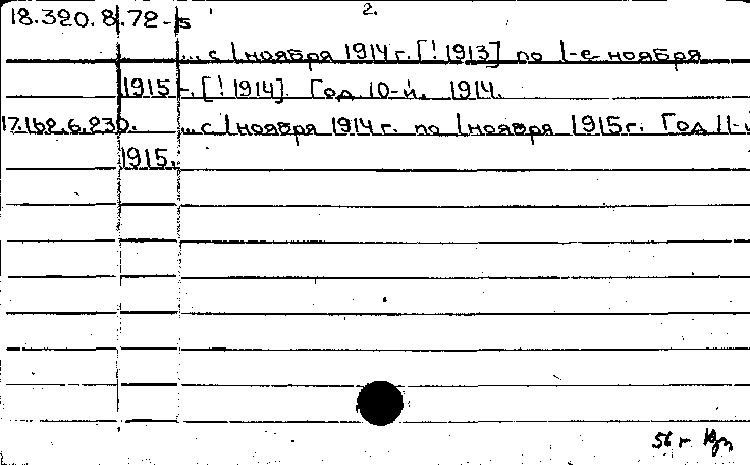 18.320.8.72-5 2.
... с 1 ноября 1914 г. [! 1913] по 1-е ноября
1915 г. [! 1914]. Год 10-й. 1914.
17.162.6.230. ... с 1 ноября 1914 г. по 1 ноября 1915 г. Год 11-
1915.
56 г.